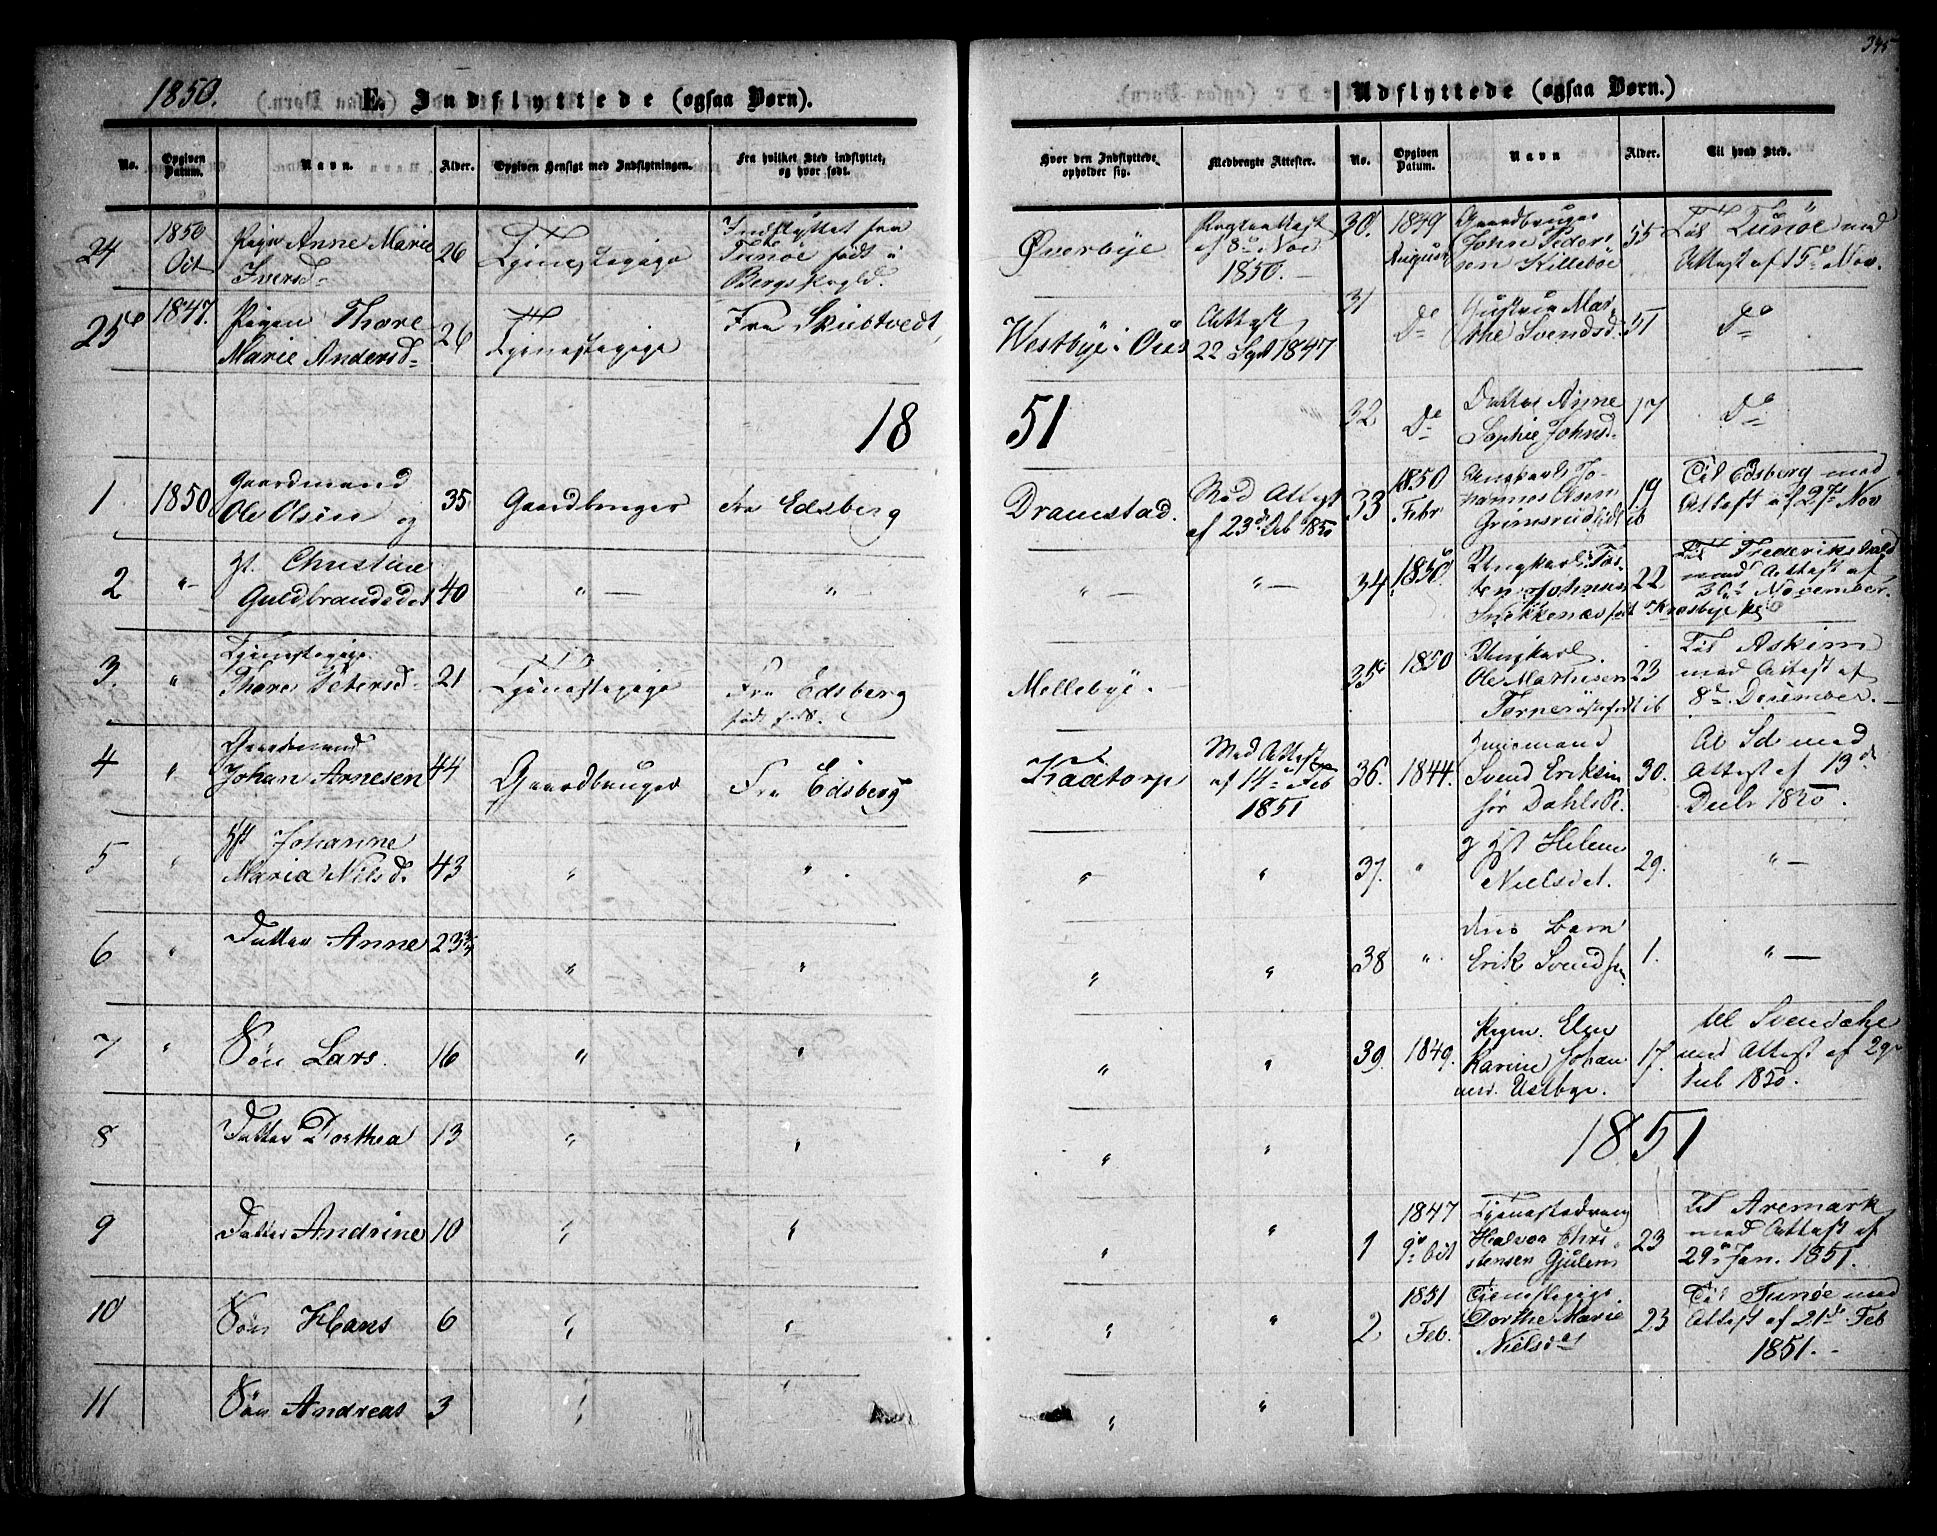 345
1850.
E. Indflyttede (ogsaa Børn).
Udflyttede (ogsaa Børn.)
No.
Opgiven Datum.
Navn.
Alder.
Opgiven Hensigt med Indflytningen.
Fra hvilket Sted indflyttet, og hvor født.
Hvor den Indflyttede opholder sig.
Medbragte Attester.
No.
Opgiven Datum.
Navn
Alder.
Til hvad Sted.
24 1850 Oct Pign Anne Marie Iversd. 26 Tjenestepige Indflyttet fra Tunøe født i Bergs Prgld. Øverbye Præsteattest af 8de Nov 1850.
25 1847. Pigen Thore Marie Andersd. 26 Tjenestepige Fra Skibtvedt, Westbye Attest 22 Sept 1847
1851
1 1850 Gaardmand Ole Olsen og 35 Gaardbruger Fra Edsberg Dramstad. Med Attest af 23de Feb 1850
2 "- Christine Guldbrandsdat 40 " — " " — " —
3. " Tjenestepige. Thore Petersd. 21 Tjenestepige Fra Edsberg født Mellebye.
4 " Gaardmand Johan Arnesen 44 Gaardbruger Fra Edsberg Kaatorp Med Attest af 14de Feb 1851
5 " Johanne Maria Nilsd. 43 " " " "
6 " Datter Anne 23 " " " "
7 " Søn Lars. 16 " " " "
8 Datter Dorthea 13 " " " "
9 Datter Andrine 10 " " " "
10 Søn Hans 6 " " " "
11 Søn Andreas 3 " " " "
30. 1849 August Gaardbruger John Pedersen Killebøe 55 Til Tunøe med Attest af 15de Nov.
31 Do Marthe Svendsd. 51 Do
32 Do Datter Anne Sophie Johnsd. 17 Do
33 1850 Febr Ungkarl Johannes Olsen Grimsrud 19 Til Edsberg med Attest af 27de Nov
34 1850. Ungkarl Johannesen født Krosbye 22 Til Frederikshald med Attest af 30te November.
35 1850 Ungkarl. Ole Mathisen Tornerøs født ib 23 Til Askim med Attest af 8de December.
36. 1844. Huusmand Svend Eriksen 30. Id med Attest af 13de Decbr 1850.
37. " Helene Nielsdat. 29. " —
38 " Barn Erik Svendsen 1. " —
39. 1849. Pigen. Elen Karine Johan 17. med Attest af 29de 1850.
1851
1 1847 Oct Tjenestedreng Halvor Christensen Gjulem 23 Til Aremark med Attest af 29de Jan. 1851.
2 1851 Feb. Tjenestepige. Dorthe Marie Nielsdat 23 Til Tunøe med Attest af 21de Feb 1851.